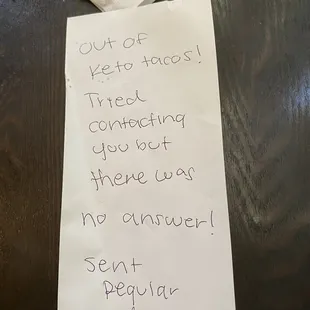 out of
keto tacos!
Tried
contacting
you but
there was
no answer!
sent
regular